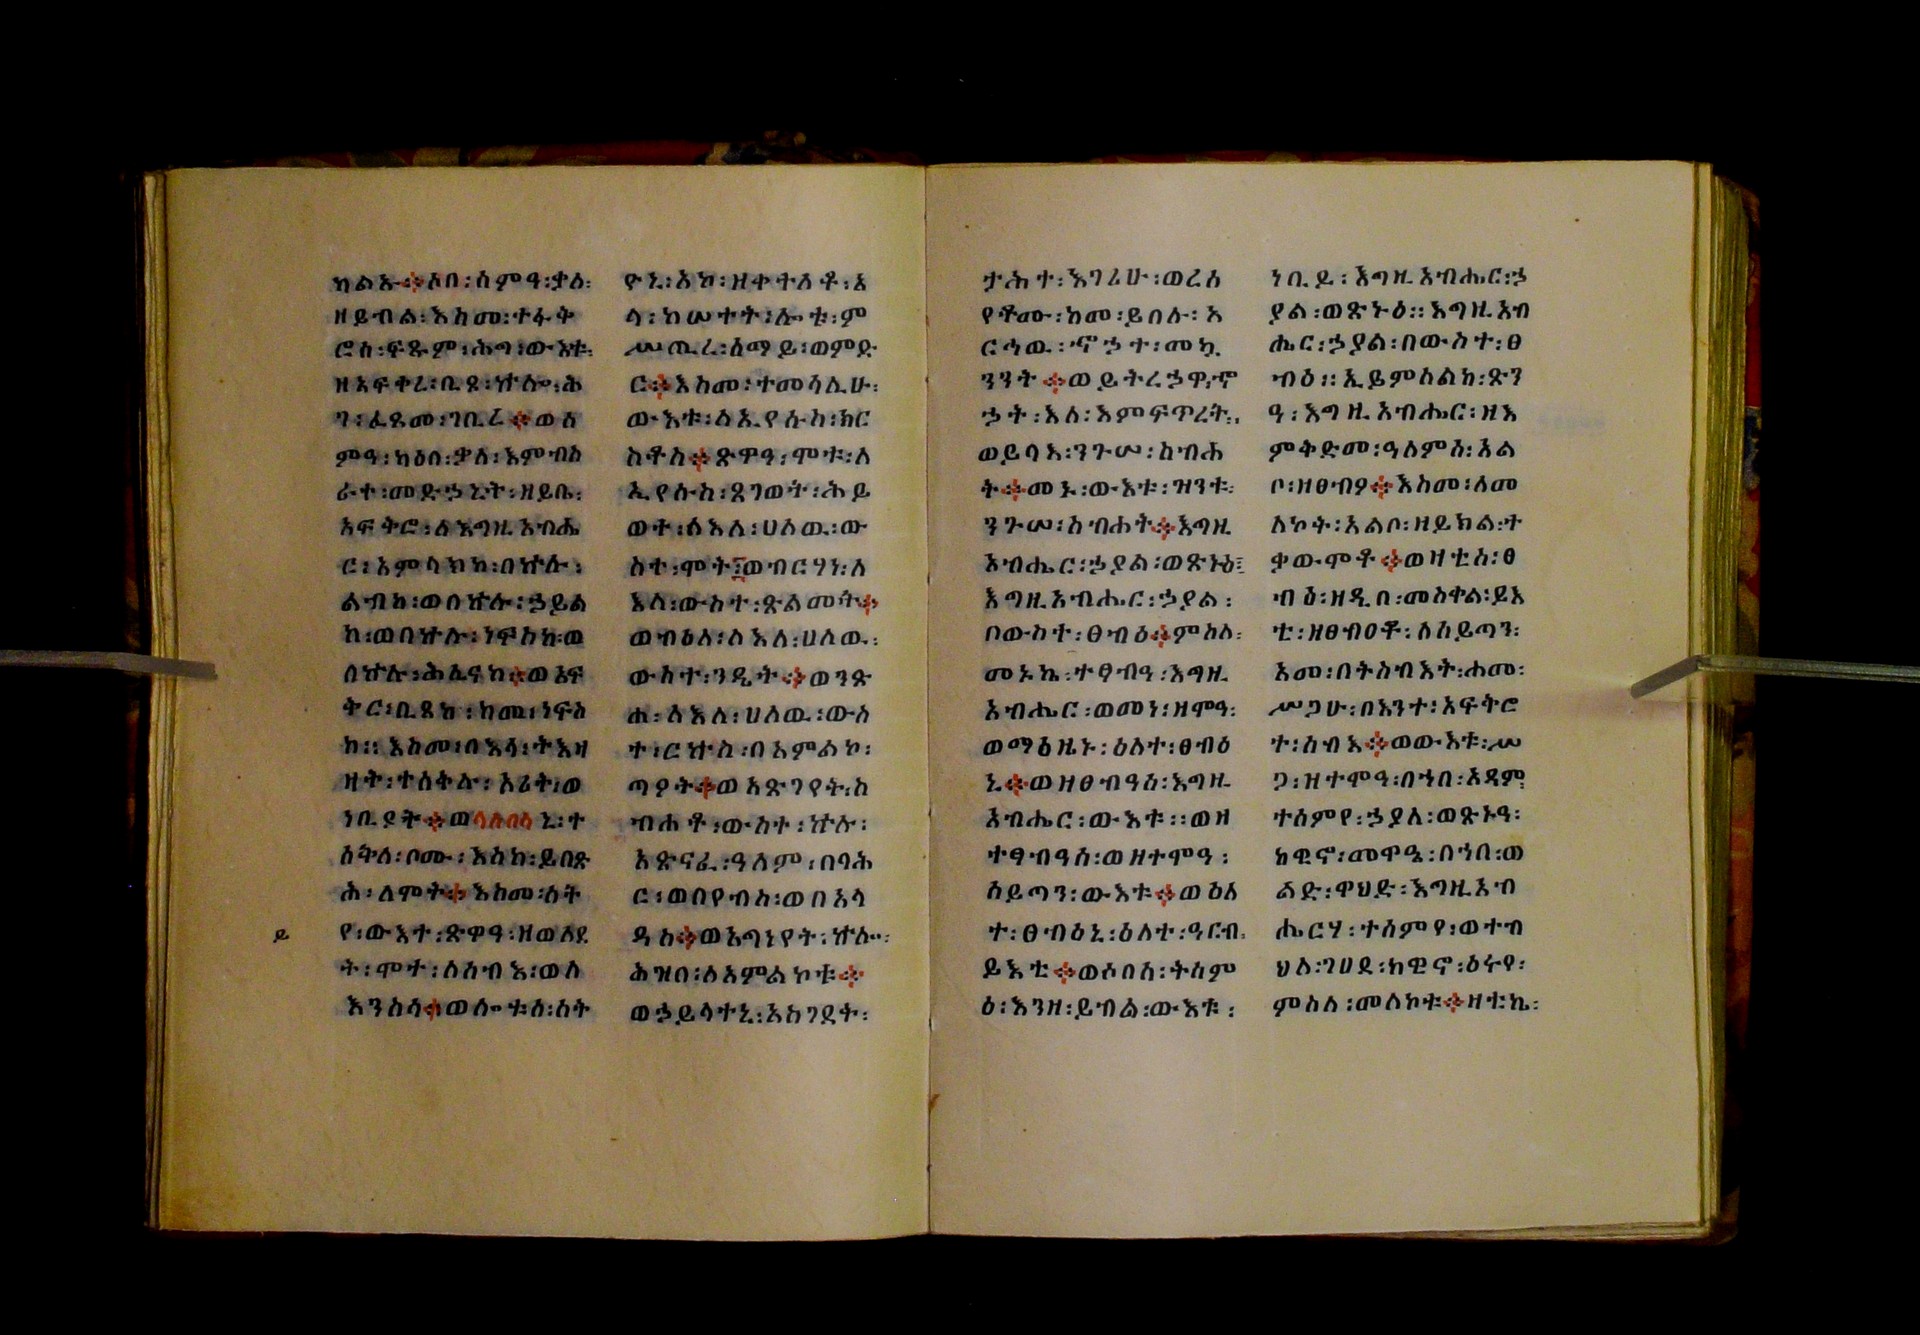 ካልእ፨ሶበ፡ሰምዓ፡ቃለ፡
ዘይብል፡እስመ፡ተፋቅ
ሮሰ፡ፍጹም፡ሕግ፡ውእቱ፡
ዘአፍቀረ፡ቢጾ፡ኵሎ፡ሕ
ገ፡ፈጸመ፡ገቢረ፨ወሰ
ምዓ፡ካዕበ፡ቃለ፡እምብስ
ራተ፡መድኃኒት፡ዘይቤ፡
አፍቅሮ፡ለእግዚአብሔ
ር፡አምላክከ፡በኵሉ፡
ልብከ፡ወበኵሉ፡ኃይል
ከ፡ወበኵሉ፡ነፍስከ፡ወ
በኵሉ፡ሕሊናከ፨ወአፍ
ቅር፡ቢጸከ፡ከመ፡ነፍስ
ከ፡፡እስመ፡በእላ፡ትእዛ
ዛት፡ተሰቅሉ፡ኦሪት፡ወ
ነቢያት፨ወለሰብእኒ፡ተ
ሰቅለ፡ቦሙ፡እስከ፡ይበጽ
ሕ፡ለሞት፨እስመ፡ሰት
የ፡ውእተ፡ጽዋዓ፡ዘወለደ
ት፡ሞት፡ለሰብእ፡ወለ
እንስሳ፨ወሎቱሰ፡ሰት
ዮኒ፡አኮ፡ዘቀተለቶ፡አ
ላ፡ከሠተት፡ሎቱ፡ም
ሥጢረ፡ሰማይ፡ወምድ
ር፨እስመ፡ተመሳሊሁ፡
ውእቱ፡ለኢየሱስ፡ክር
ስቶስ፨ጽዋዓ፡ሞቱ፡ለ
ኢየሱስ፡ጸገወት፡ሕይ
ወተ፡ለእለ፡ሀለዉ፡ው
ስተ፡ሞት፤ወብርሃነ፡ለ
እለ፡ውስተ፡ጽልመት፨
ወብዕለ፡ለእለ፡ሀለዉ፡
ውስተ፡ንዴት፨ወንጽ
ሐ፡ለእለ፡ሀለዉ፡ውስ
ተ፡ርኵስ፡በአምልኮ፡
ጣዖት፨ወአጽገየት፡ስ
ብሐቶ፡ውስተ፡ኵሉ፡
አጽናፈ፡ዓለም፡በባሕ
ር፡ወበየብስ፡ወበአሳ
ዳስ፨ወአግነየት፡ኵሎ፡
ሕዝበ፡ለአምልኮቱ፨
ወኃይላተኒ፡አስገደት፡
ታሕተ፡እገሪሁ፡ወረሰ
የቶሙ፡ከመ፡ይበሉ፡አ
ርኅዉ፡ኆኃተ፡መኳ
ንንት፨ወይትረኃዋ፡ኆ
ኃት፡እለ፡እምፍጥረት፡
ወይባእ፡ንጉሠ፡ስብሐ
ት፨መኑ፡ውእቱ፡ዝንቱ፡
ንጉሠ፡ስብሐት፨እግዚ
አብሔር፡ኃያል፡ወጽኑዕ፤
እግዚአብሔር፡ኃያል፡
በውስተ፡ፀብዕ፨ምስለ፡
መኑኬ፡ተፃብዓ፡እግዚ
አብሔር፡ወመነ፡ዘሞዓ፡
ወማዕዜኑ፡ዕለተ፡ፀብዕ
ኒ፨ወዘፀብዓሰ፡እግዚ
አብሔር፡ውእቱ፡፡ወዘ
ተፃብዓሰ፡ወዘተሞዓ፡
ሰይጣን፡ውእቱ፨ወዕለ
ተ፡ፀብዕኒ፡ዕለተ፡ዓርብ፡
ይእቲ፨ወሶበሰ፡ትሰም
ዕ፡እንዘ፡ይብል፡ውእቱ፡
ነቢይ፡እግዚአብሔር፡ኃ
ያል፡ወጽኑዕ፡፡እግዚአብ
ሔር፡ኃያል፡በውስተ፡ፀ
ብዕ፡፡ኢይምስልከ፡ጽን
ዓ፡እግዚአብሔር፡ዘእ
ምቅድመ፡ዓለምሰ፡አል
ቦ፡ዘፀብዖ፨እስመ፡ለመ
ለኮት፡አልቦ፡ዘይክል፡ተ
ቃውሞቶ፨ወዛቲሰ፡ፀ
ብዕ፡ዘዲበ፡መስቀል፡ይእ
ቲ፡ዘፀብዐቶ፡ለሰይጣን፡
አመ፡በትስብእት፡ሐመ፡
ሥጋሁ፡በእንተ፡አፍቅሮ
ተ፡ሰብእ፨ወውእቱ፡ሥ
ጋ፡ዝተሞዓ፡በኀበ፡አዳም፡
ተሰምየ፡ኃያለ፡ወጽኑዓ፡
ከዊኖ፡መዋዒ፡በኀበ፡ወ
ልድ፡ዋህድ፡እግዚአብ
ሔርሃ፡ተሰምየ፡ወተብ
ህለ፡ገሀደ፡ከዊኖ፡ዕሩየ፡
ምስለ፡መለኮቱ፨ዘቲኬ፡